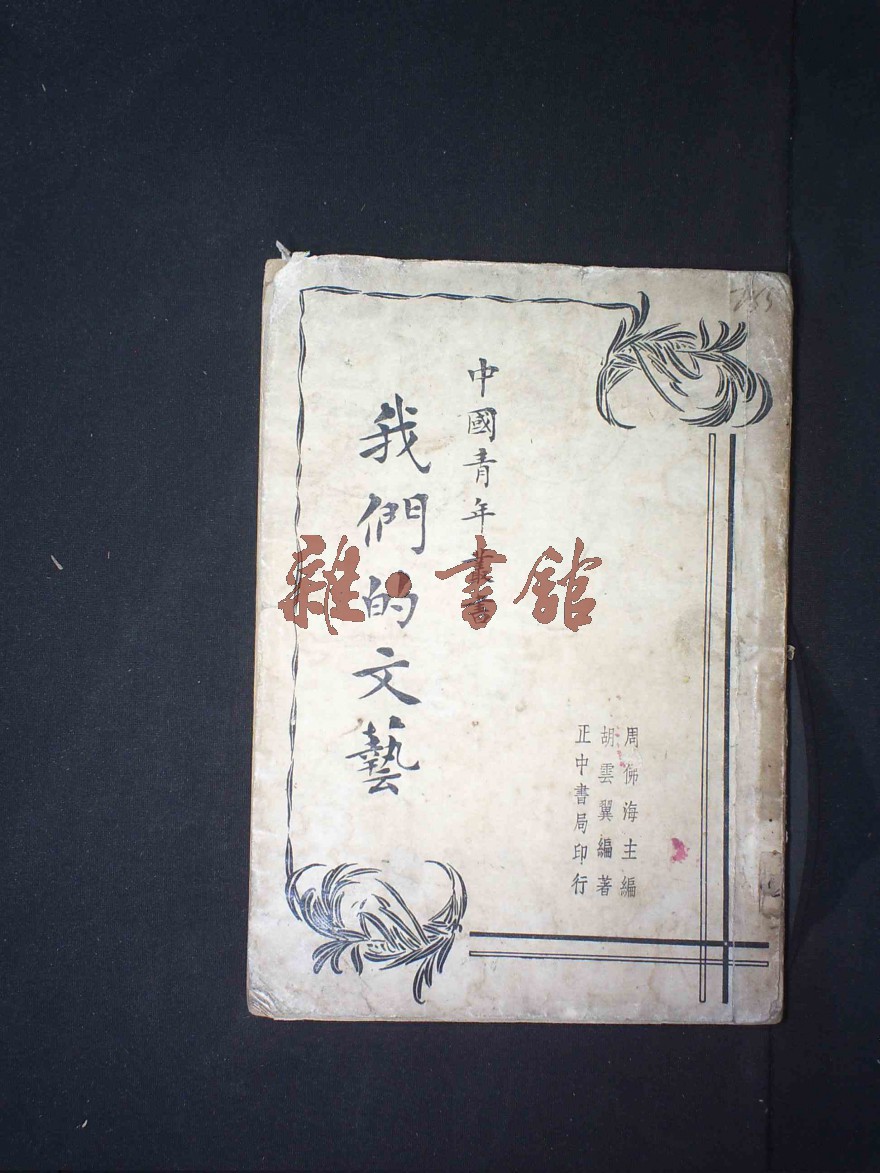 中國青年叢書
我們的文藝
周佛海主編
胡雲翼編著
正中書局印行
雜·書館